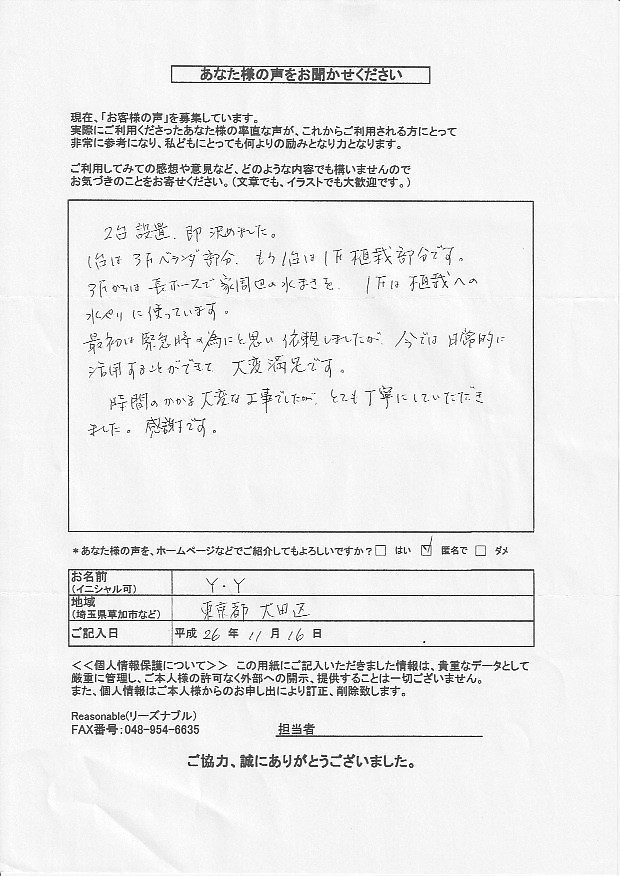 あなた様の声をお聞かせください
現在、「お客様の声」を募集しています。
実際にご利用くださったあなた様の率直な声が、これからご利用される方にとって
非常に参考になり、私どもにとっても何よりの励みとなり力となります。
ご利用してみての感想や意見など、どのような内容でも構いませんので
お気づきのことをお寄せください。（文章でも、イラストでも大歓迎です。）
2台設置、即決めました。
1台は3Fベランダ部分、もう1台は1F植栽部分です。
3Fからは長ホースで家周辺の水まきを、1Fは植栽への
水やりに使っています。
最初は緊急時の為にと思い依頼しましたが、今では日常的に
活用することができて大変満足です。
時間のかかる大変な工事でしたが、とても丁寧にしていただき
ました。感謝です。
*あなた様の声を、ホームページなどでご紹介してもよろしいですか？□ はい ☑ 匿名で □ ダメ
お名前
（イニシャル可） Y・Y
地域
（埼玉県草加市など） 東京都 大田区
ご記入日 平成 26 年 11 月 16 日
<<個人情報保護について>> この用紙にご記入いただきました情報は、貴重なデータとして
厳重に管理し、ご本人様の許可なく外部への開示、提供することは一切ございません。
また、個人情報はご本人様からのお申し出により訂正、削除致します。
Reasonable(リーズナブル)
FAX番号：048-954-6635 担当者
ご協力、誠にありがとうございました。